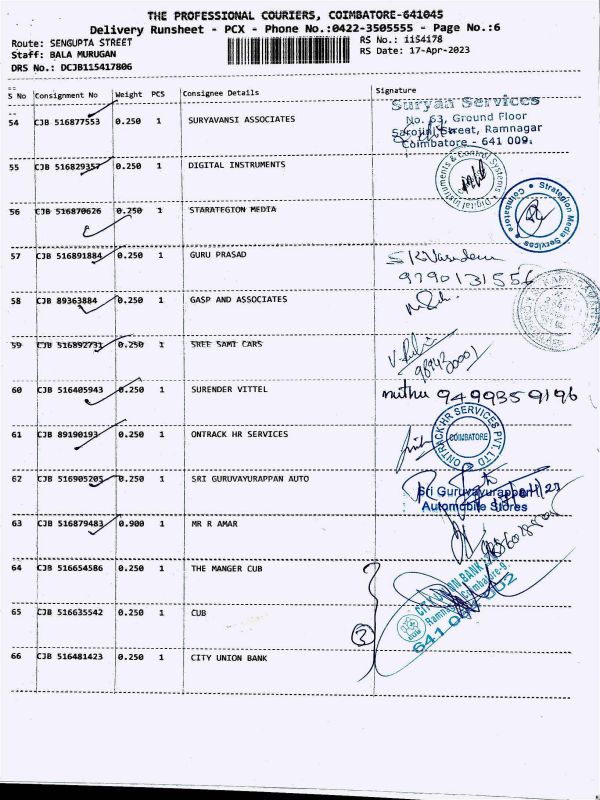 THE PROFESSIONAL COURIERS, COIMBATORE-641045
Delivery Runsheet - PCX - Phone No.:0422-3505555 - Page No.:6
Route: SENGUPTA STREET
RS No.: 1154178
Staff: BALA MURUGAN
RS Date: 17-Apr-2023
DRS No.: DCJB115417806
S No Consignment No Weight PCS Consignee Details Signature
54 CJB 516877553 0.250 1 SURYAVANSI ASSOCIATES
Suryaa Services
No. 63, Ground Floor
Sarojini Street, Ramnagar
Coimbatore - 641 009.
55 CJB 516829357 0.250 1 DIGITAL INSTRUMENTS
Digital Instruments & Control Systems
56 CJB 516870626 0.250 1 STARATEGION MEDIA
Strategion Media Services
Coimbatore
57 CJB 516891884 0.250 1 GURU PRASAD
9790131556
58 CJB 89363884 0.250 1 GASP AND ASSOCIATES
59 CJB 516892731 0.250 1 SREE SAMI CARS
60 CJB 516405943 0.250 1 SURENDER VITTEL
muthu 9499359196
61 CJB 89190193 0.250 1 ONTRACK HR SERVICES
ONTRACK HR SERVICES PVT. LTD
COIMBATORE
62 CJB 516905205 0.250 1 SRI GURUVAYURAPPAN AUTO
Sri Guruvayurappan
Automobile Stores
63 CJB 516879483 0.900 1 MR R AMAR
64 CJB 516654586 0.250 1 THE MANGER CUB
CITY UNION BANK
65 CJB 516635542 0.250 1 CUB
3
66 CJB 516481423 0.250 1 CITY UNION BANK